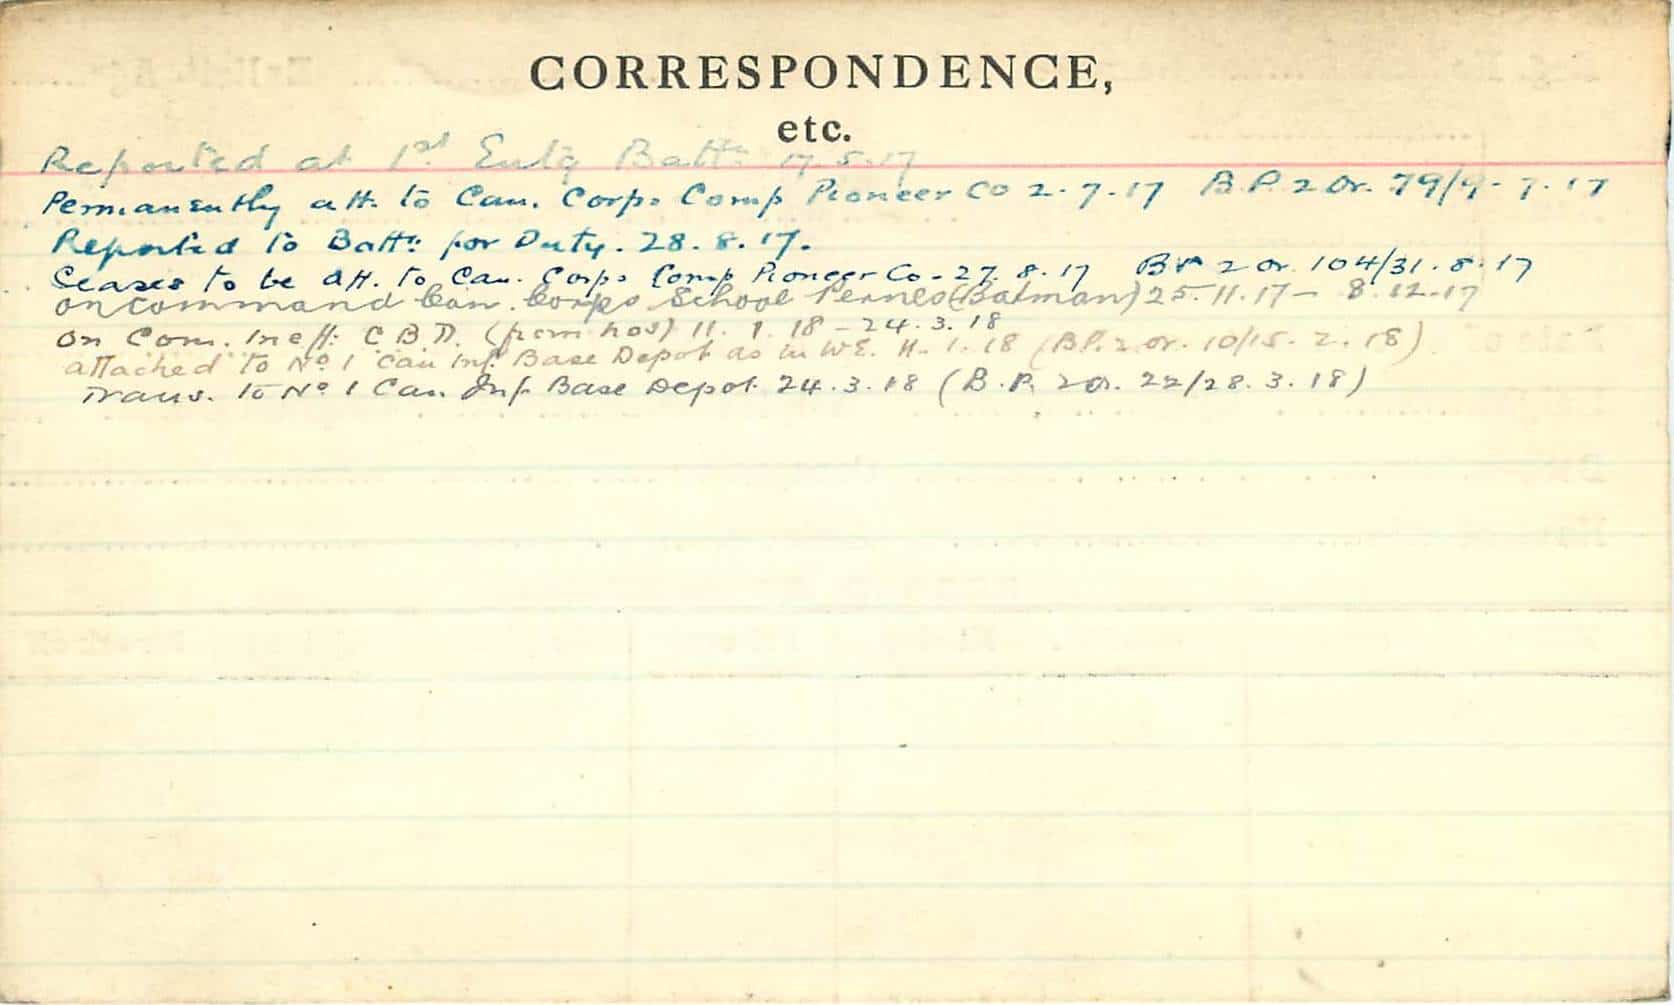 CORRESPONDENCE,
etc.
Reported at 1st Entg Battn 17.5.17
Permanently att. to Can. Corps Comp Pioneer Co 2.7.17 B.P. 2 Or. 79/9.7.17
Reported to Battn for Duty. 28.8.17.
Ceases to be att. to Can. Corps Comp Pioneer Co - 27.8.17 BP 2 Or. 104/31.8.17
on command Can. Corps School Pernes (Batman) 25.11.17 - 8.12.17
On Com. Ineff. C B D. (from hos) 11.1.18 - 24.3.18
attached to No 1 Can Inf. Base Depot as in W.E. 11.1.18 (B.P. 2 or. 10/15.2.18)
Trans. to No 1 Can. Inf Base Depot 24.3.18 (B.P. 2 Or. 22/28.3.18)